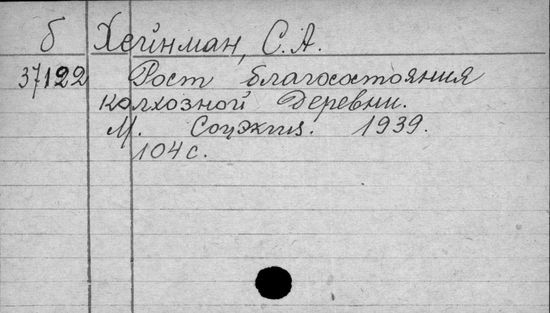 б Хейнман, С.А.
37122 Рост благосостояния
колхозной деревни.
М. Соцэкгиз. 1939.
104 с.